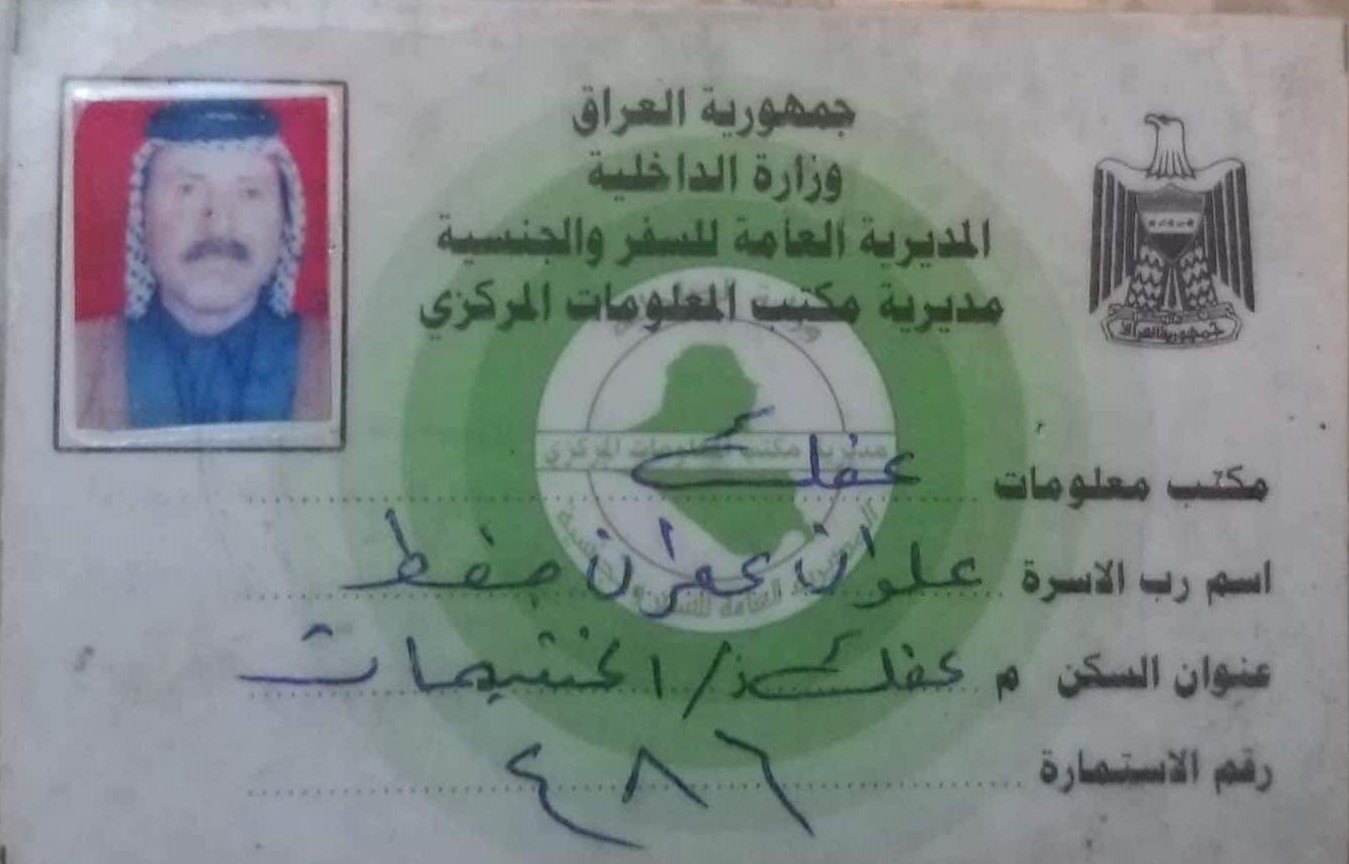 جمهورية العراق
وزارة الداخلية
المديرية العامة للسفر والجنسية
مديرية مكتب المعلومات المركزي
جمهورية العراق
مديرية مكتب المعلومات المركزي
مكتب معلومات عفك
اسم رب الاسرة علوان عمران
عنوان السكن م عفك ز /
رقم الاستمارة ٤٨٦